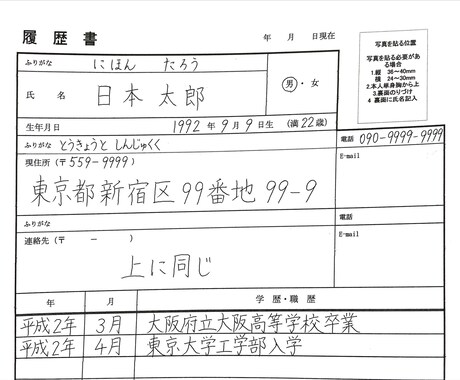 履歴書
年 月 日現在
写真を貼る位置
写真を貼る必要がある場合
1.縦 36〜40mm
横 24〜30mm
2.本人単身胸から上
3.裏面のりづけ
4 裏面に氏名記入
ふりがな にほん たろう
氏 名 日本 太郎
男・女
生年月日 1992年9月9日生 (満22歳)
ふりがな とうきょうと しんじゅくく
電話 090-9999-9999
現住所(〒559-9999)
E-mail
東京都新宿区99番地99-9
ふりがな
電話
連絡先(〒 ー )
E-mail
上に同じ
年 月 学歴・職歴
平成2年 3月 大阪府立大阪高等学校卒業
平成2年 4月 東京大学工学部入学